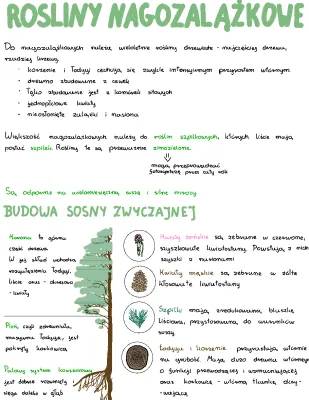 ROŚLINY NAGOZALĄŻKOWE
Do nagozalążkowych należą wieloletnie rośliny drzewiaste - najczęściej drzewa,
rzadziej krzewy.
· korzenie i łodygi cechują się zwykle intensywnym przyrostem wtórnym.
· drewno zbudowane z cewek
· łyko zbudowane jest z komórek sitowych
· jednopłciowe kwiaty
· nieosłonięte zalążki i nasiona
Większość nagozalążkowych należy do roślin szpilkowych, których liście mają
postać szpilek. Rośliny te są przeważnie zimozielone.
mogą przeprowadzać
fotosyntezę przez cały rok
Są odporne na wielomiesięczną suszę i silne mrozy
BUDOWA SOSNY ZWYCZAJNEJ
Korona to górna
część drzewa.
W jej skład wchodzą
rozgałęzienia łodygi,
liście oraz - okresowo
- kwiaty
Pień, czyli zdrewniała,
masywna łodyga, jest
pokryty korkowicą
Palowy system korzeniowy
jest dobrze rozwinięty
sięga daleko w głąb
Kwiaty żeńskie są zebrane w czerwone,
szyszkowate kwiatostany. Powstają z nich
szyszki z nasionami
Kwiaty męskie są zebrane w żółte
kłosowate kwiatostany
Szpilki mają zredukowaną blaszkę
liściową, przystosowaną do warunków
suszy
Łodyga i korzenie przyrastają wtórnie
na grubość. Mają dużo drewna wtórnego
o funkcji przewodzącej i wzmacniającej
oraz korkowicę - wtórną tkankę okry-
wającą